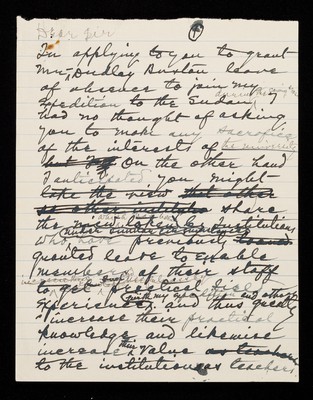 Dear Sir
In applying to you to grant
Mr. Dudley Buxton leave
of absence to join my
expedition to the Sudan, I
had no thought of asking
you to make any sacrifice
of the interests of the university
but I On the other hand
I anticipated you might
take the view that other
share
the view taken by Institutions
who have previously
granted leave to enable
members of their staff
to get practical field
experience with my expedition and others and thus greatly
increase their practical
knowledge and likewise
increase their value as teachers
to the institution as teachers.